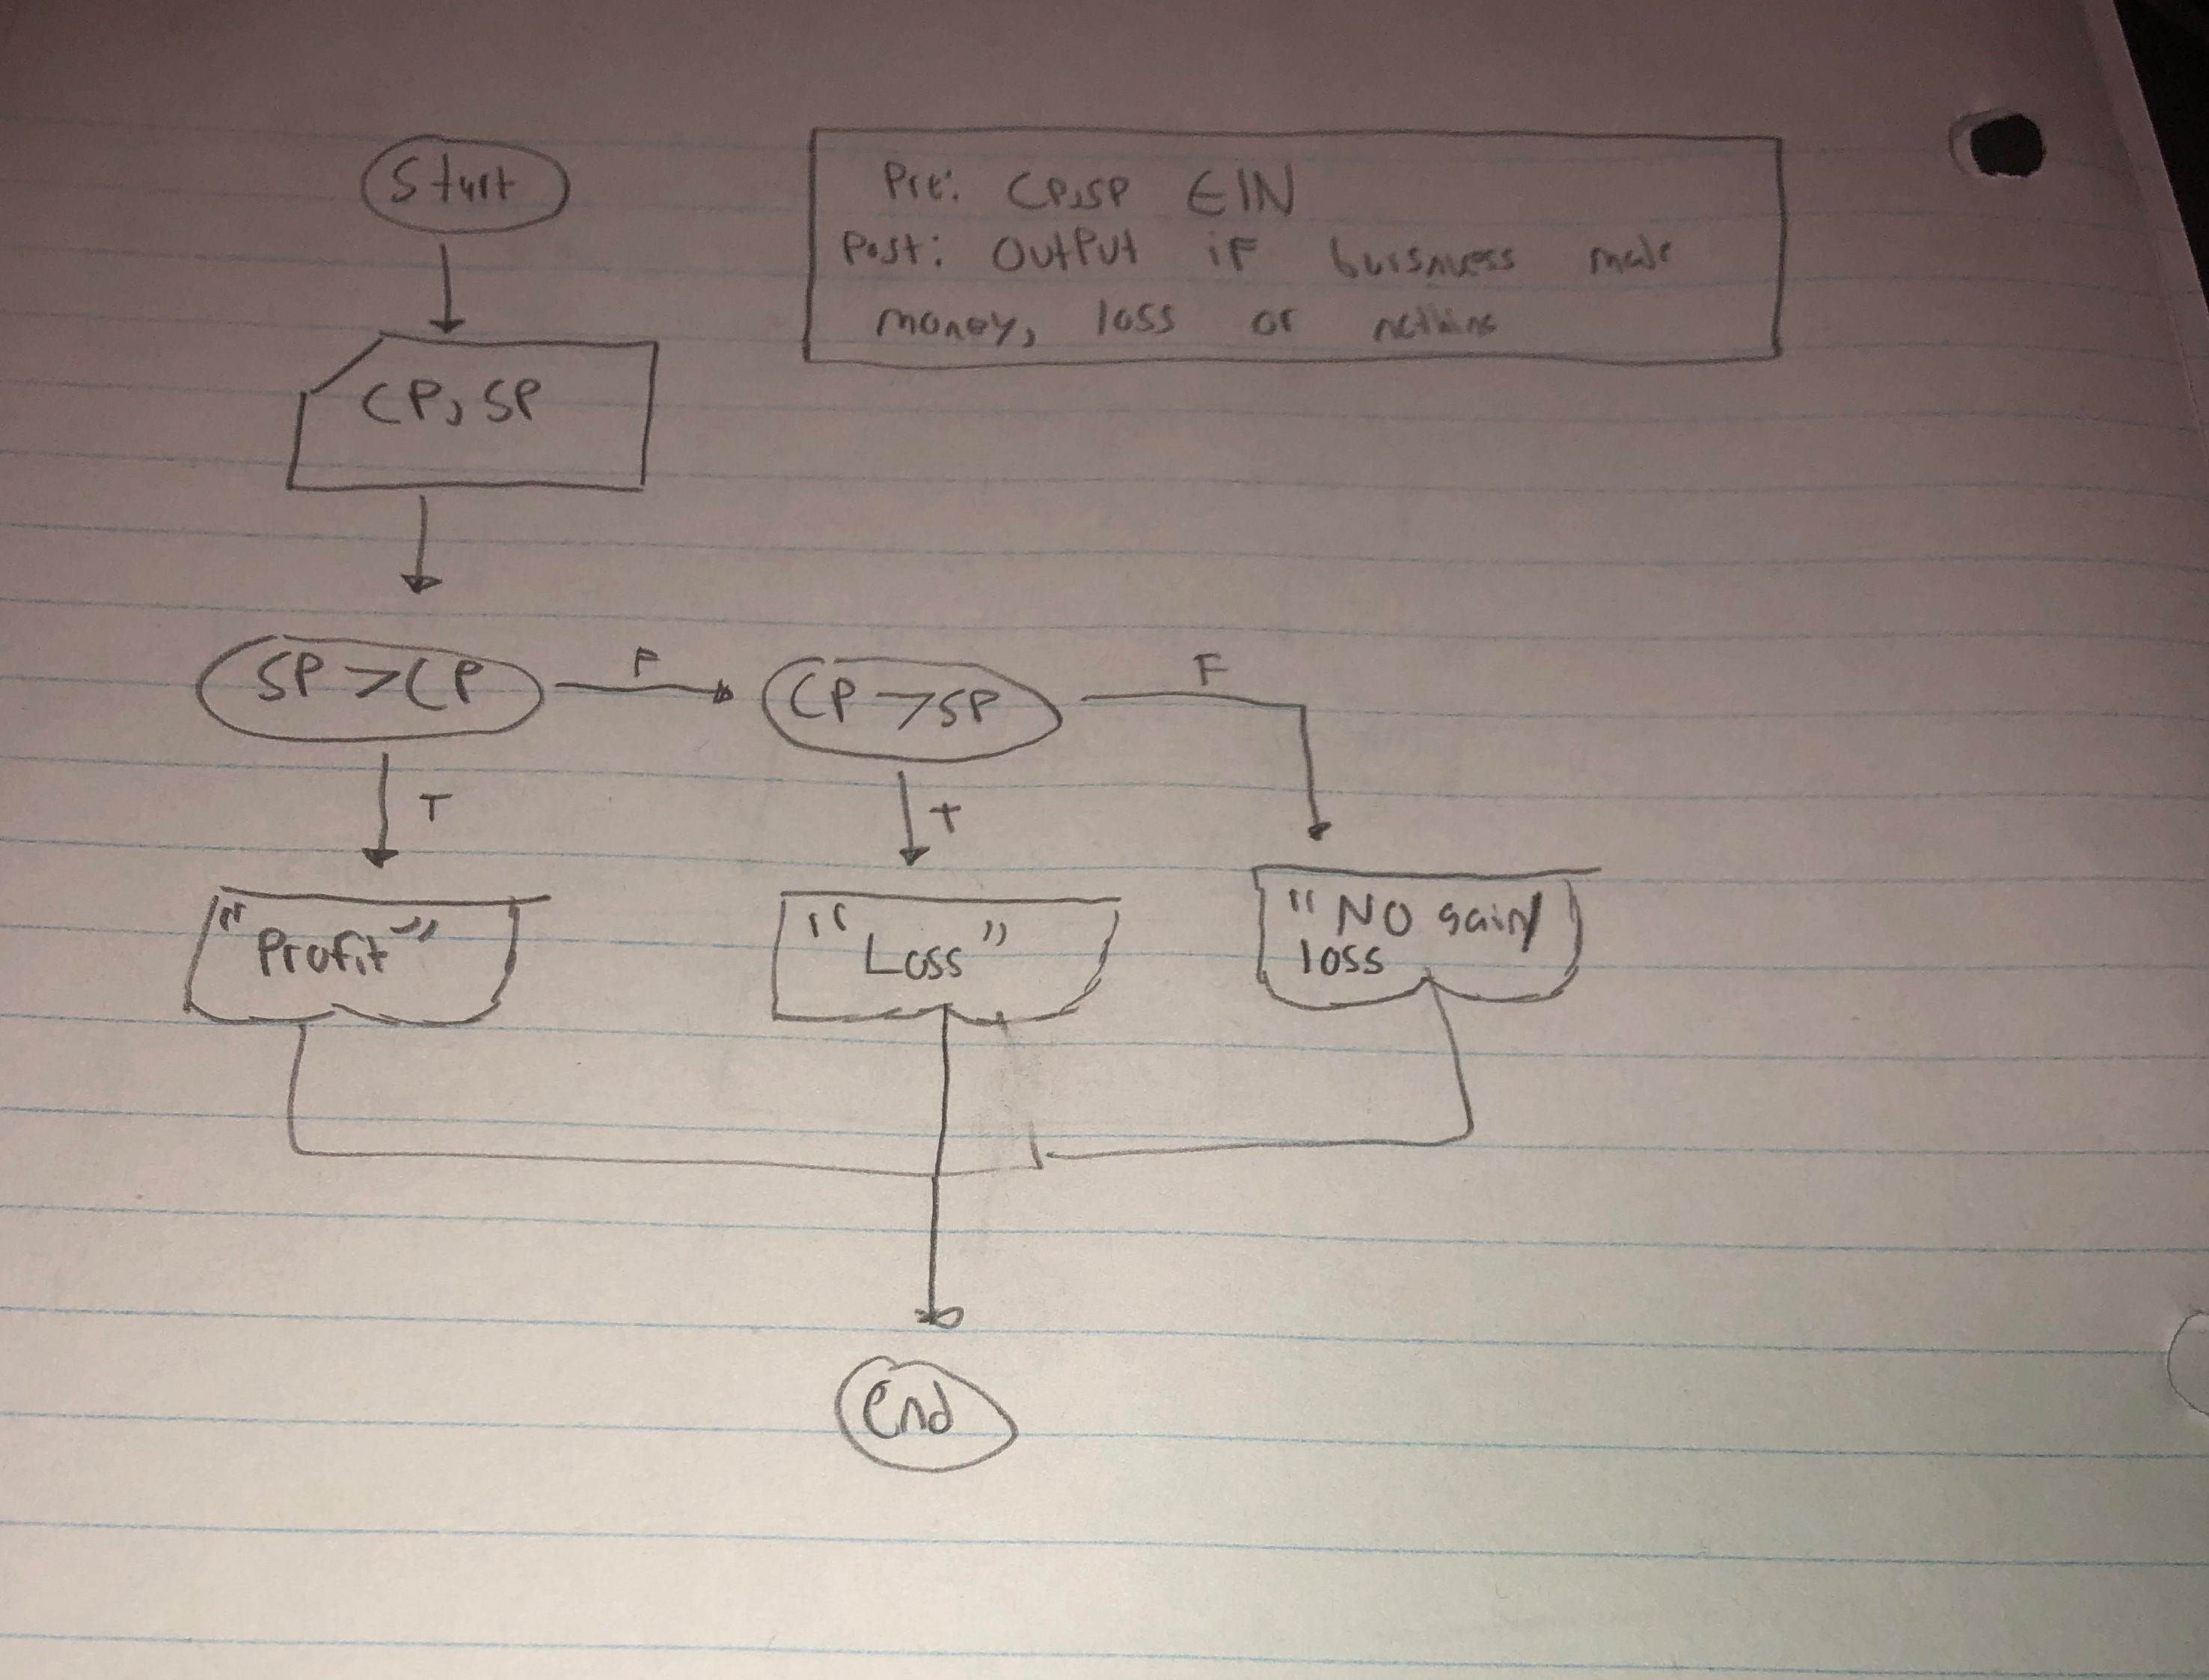 Start
Pre: CP,SP ∈ IN
Post: OutPut if buisness made
money, loss or nothing
CP, SP
SP > CP
F
CP > SP
F
T
T
"Profit"
"Loss"
"NO gain/
loss
End